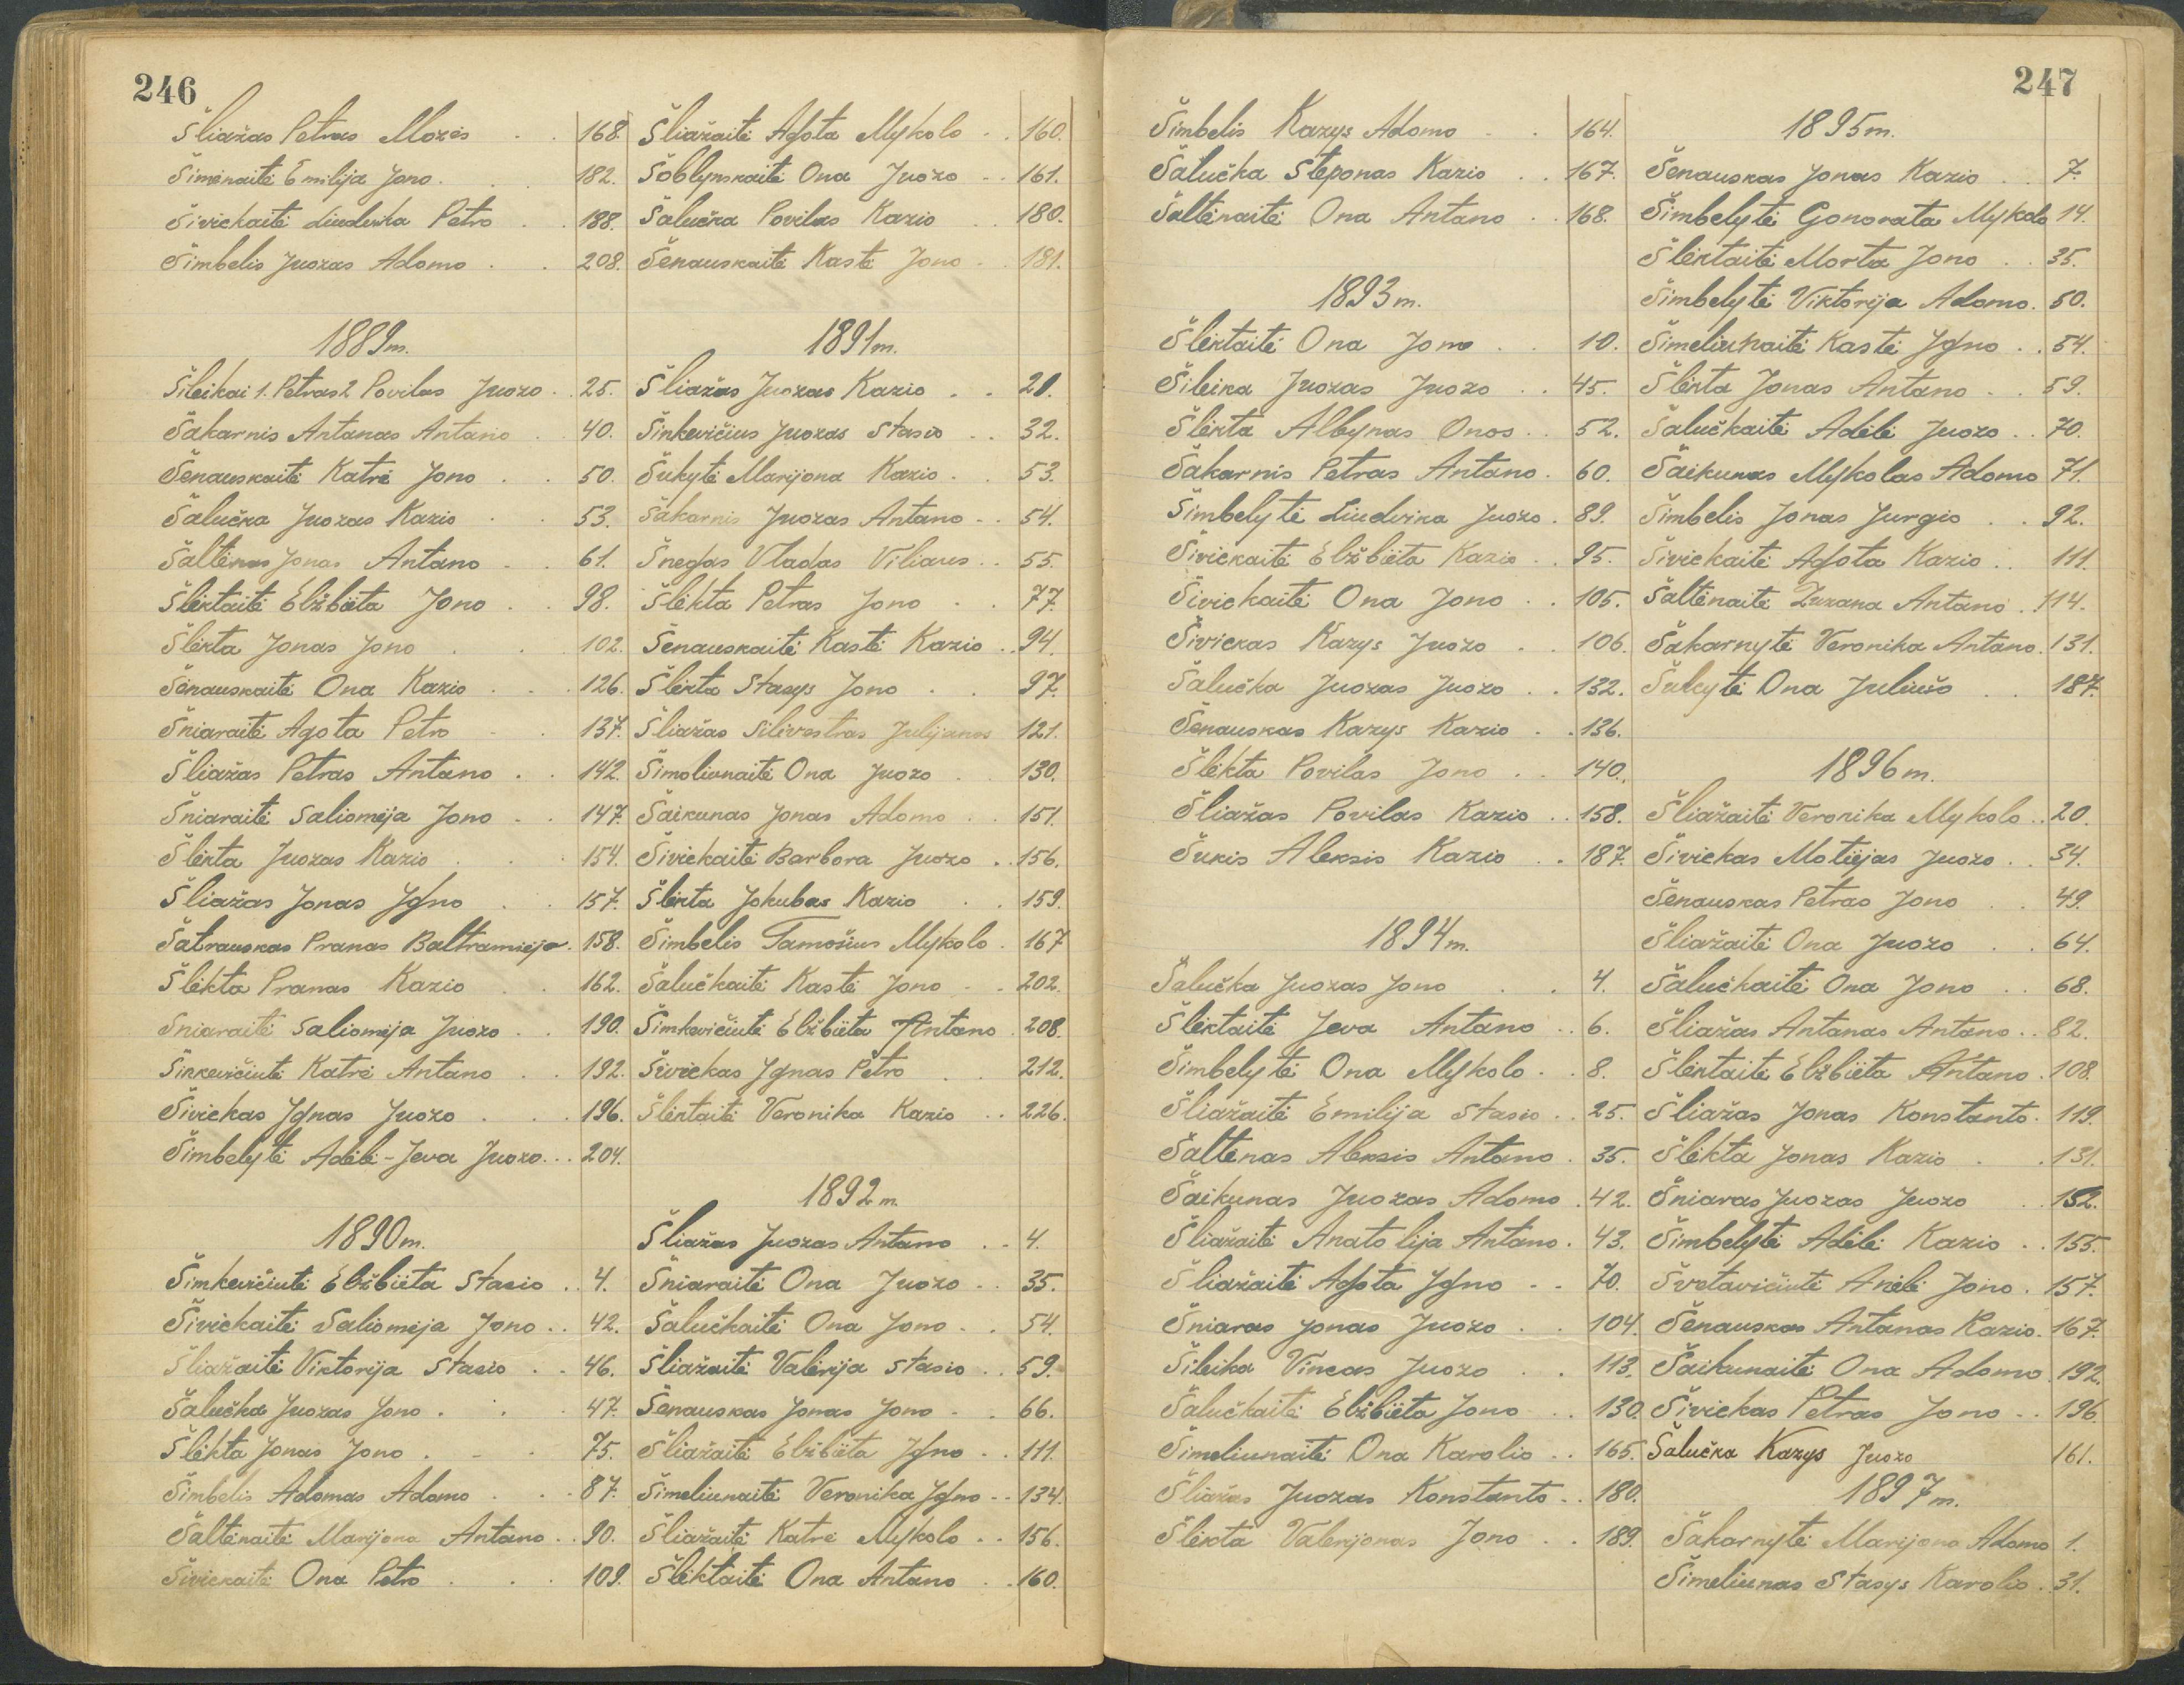 246
Šliažas Petras Mozės . . 168.
Šimėnaitė Emilija Jono . . . 182.
Šivickaitė Liudvika Petro . . 188.
Šimbelis Juozas Adomo . . 208.
1889m.
Šileikai 1. Petras 2 Povilas Juozo . . 25.
Šakarnis Antanas Antano . . 40.
Šenauskaitė Katrė Jono . . 50.
Šalučka Juozas Kazio . . 53.
Šaltenas Jonas Antano . . 61.
Šlektaitė Elžbieta Jono . . 98.
Šlekta Jonas Jono . . . 102.
Šenauskaitė Ona Kazio . . . 126.
Šniaraitė Agota Petro . . 137.
Šliažas Petras Antano . . 142.
Šniaraitė Saliomėja Jono . . 147.
Šlekta Juozas Kazio . . . 154.
Šliažas Jonas Igno . . 157.
Šatrauskas Pranas Baltramiejo . 158.
Šlekta Pranas Kazio . . 162.
Šniaraitė Saliomėja Juozo . . 190.
Šinkevičiutė Katrė Antano . . 192.
Šivickas Ignas Juozo . . . 196.
Šimbelytė Adelė-Jeva Juozo . . . 204.
1890m.
Šimkevičiutė Elžbieta Stasio . . 4.
Šivickaitė Saliomėja Jono . . 42.
Šliažaitė Viktorija Stasio . . 46.
Šalučka Juozas Jono . . . 47.
Šlekta Jonas Jono . . . 75.
Šimbelis Adomas Adomo . . . 87.
Šaltenaitė Marijona Antano . . 90.
Šivickaitė Ona Petro . . . 109.
Šliažaitė Agota Mykolo . . 160.
Šoblynskaitė Ona Juozo . . 161.
Šalučka Povilas Kazio . . 180.
Šenauskaitė Kastė Jono . . 181.
1891m.
Šliažas Juozas Kazio . . 21.
Šinkevičius Juozas Stasio . . 32.
Šukytė Marijona Kazio . . 53.
Šakarnis Juozas Antano . . 54.
Šnegas Vladas Viliaus . . 55.
Šlekta Petras Jono . . 77.
Šenauskaitė Kastė Kazio . . 94.
Šlekta Stasys Jono . . 97.
Šliažas Silivestras Julijonos 121.
Šimoliunaitė Ona Juozo . 130.
Šaikunas Jonas Adomo . . 151.
Šivickaitė Barbora Juozo . . 156.
Šlekta Jokubas Kazio . . 159.
Šimbelis Tamošius Mykolo . 167
Šalučkaitė Kastė Jono . . 202.
Šimkevičiutė Elžbieta Antano . 208.
Šivickas Ignas Petro . . 212.
Šlektaitė Veronika Kazio . . 226.
1892m.
Šliažas Juozas Antano . . 4.
Šniaraitė Ona Juozo . . 35.
Šalučkaitė Ona Jono . . 54.
Šliažaitė Valerija Stasio . . 59.
Šenauskas Jonas Jono . . 66.
Šliažaitė Elžbieta Igno . . 111.
Šimeliunaitė Veronika Igno . . 134.
Šliažaitė Katrė Mykolo . . 156.
Šlektaitė Ona Antano . . 160.
247
Šimbelis Kazys Adomo . . 164.
Šalučka Steponas Kazio . . 167.
Šaltėnaitė Ona Antano . . 168.
1893m.
Šlektaitė Ona Jono . . 10.
Šileika Juozas Juozo . . 45.
Šlekta Albynas Onos . . 52.
Šakarnis Petras Antano . 60.
Šimbelytė Liudvika Juozo . 89.
Šivickaitė Elžbieta Kazio . . 95.
Šivickaitė Ona Jono . . 105.
Šivickas Kazys Juozo . . 106.
Šalučka Juozas Juozo . . 132.
Šenauskas Kazys Kazio . . 136.
Šlekta Povilas Jono . . 140.
Šliažas Povilas Kazio . . 158.
Šukis Aleksis Kazio . . 187.
1894m.
Šalučka Juozas Jono . . 4.
Šlektaitė Jeva Antano . . 6.
Šimbelytė Ona Mykolo . . 8.
Šliažaitė Emilija Stasio . . 25.
Šaltenas Aleksis Antano . 35.
Šaikunas Juozas Adomo . 42.
Šliažaitė Anatolija Antano . 43.
Šliažaitė Agota Igno . . 70.
Šniaras Jonas Juozo . . 104.
Šileika Vincas Juozo . . 113.
Šalučkaitė Elžbieta Jono . . 130.
Šimeliunaitė Ona Karolio . . 165.
Šliažas Juozas Konstanto . . 180.
Šlekta Valerijonas Jono . . 189.
1895m.
Šenauskas Jonas Kazio . . 7.
Šimbelytė Gonorata Mykolo 14.
Šlektaitė Morta Jono . . 35.
Šimbelytė Viktorija Adomo . 50.
Šimeliunaitė Kastė Igno . . 54.
Šlekta Jonas Antano . . 59.
Šalučkaitė Adelė Juozo . . 70.
Šaikunas Mykolas Adomo 71.
Šimbelis Jonas Jurgio . . 92.
Šivickaitė Agota Kazio . . 111.
Šaltėnaitė Zuzana Antano . 114.
Šakarnytė Veronika Antano . 131.
Šukytė Ona Juliušo . . 187.
1896m.
Šliažaitė Veronika Mykolo . . 20.
Šivickas Motiejas Juozo . . 34.
Šenauskas Petras Jono . . 49.
Šliažaitė Ona Juozo . . 64.
Šalučkaitė Ona Jono . . 68.
Šliažas Antanas Antano . . 82.
Šlektaitė Elžbieta Antano . 108.
Šliažas Jonas Konstanto . 119.
Šlekta Jonas Kazio . . 131.
Šniaras Juozas Juozo . . 152.
Šimbelytė Adelė Kazio . . 155.
Švetavičiutė Anelė Jono . 157.
Šenauskas Antanas Kazio . 167.
Šaikunaitė Ona Adomo . 192.
Šivickas Petras Jono . . 196.
Šalučka Kazys Juozo 161.
1897m.
Šakarnytė Marijona Adomo 1.
Šimeliunas Stasys Karolio . 31.